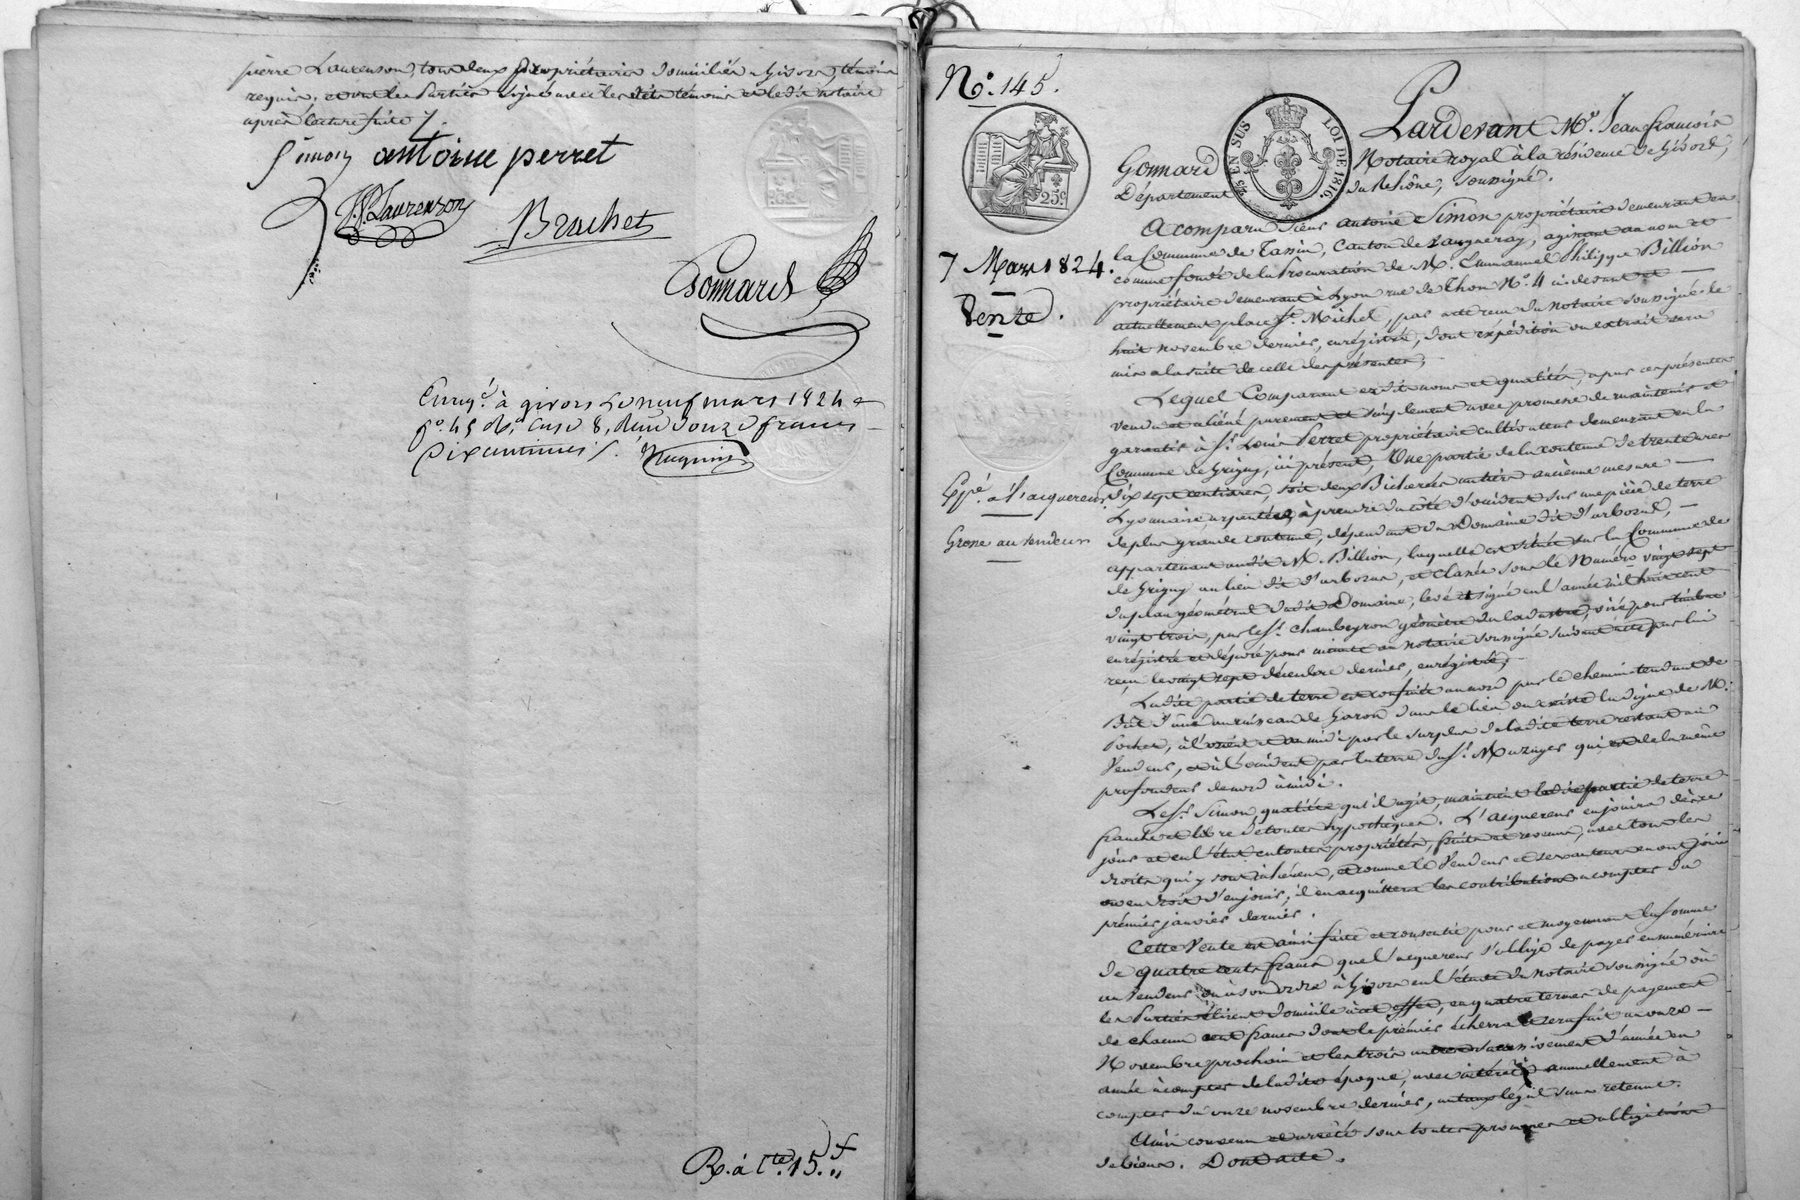 pierre Laurenson, tous deux propriétaires domiciliés à Givors, témoins
requis, et ont les Parties signé avec les dits témoins et le dit notaire
après lecture faite /.
Simon antoine perret
J. P. Laurenson
Brachet
Gonnard
Enreg.é à givors Le neuf mars 1824
f.o 45 R.o Case 8, deux francs
Dix centimes /.
R. à C.te 15.f „
N.o 145.
25c
25 EN SUS LOI DE 1816.
7 Mars 1824.
Vente.
Exp.é à l'acquereur
Grosse au vendeur
Pardevant M.e Jean françois
Gonnard Notaire royal à la résidence de Givors,
Département du Rhône, soussigné.
A comparu Sieur antoine Simon propriétaire demeurant en
la Commune de Tassin, Canton de Vaugneray, agissant au nom et
comme fondé de la Procuration de M. Emmanuel Philippe Billion
propriétaire demeurant à Lyon rue de Thon N.o 4 ci-devant et
actuellement place S.t Michel, par acte reçu du notaire soussigné le
huit novembre dernier, enregistré, dont expédition ou extrait sera
mis a la suite de celle des présentes;
Lequel Comparant es dits noms et qualités, a par ces présentes
vendu et aliéné purement et simplement avec promesse de maintenir et
garantir à S.r Louis Perret propriétaire cultivateur demeurant en la
Commune de Grigny, ici présent, Une partie de la contenue de trente
dix sept centiares, soit deux Bicherées ancienne mesure
Lyonnaise, arpentées, à prendre du côté d'occident sur une pièce de terre
de plus grande contenue, dépendant du Domaine dit d'arboras,
appartenant audit M. Billion, laquelle est située sur la Commune de
Grigny au lieu dit d'arboras, et classée sous le Numéro vingt sept
du plan géométral dudit Domaine, levé et signé en l'année mil huit cent
vingt trois, par le S.r Chambeyron géomètre du cadastre, visé pour timbre
enregistré et déposé pour minute au notaire soussigné suivant acte par lui
reçu le vingt sept décembre dernier, enregistré;
Ladite partie de terre est confinée au nord par le chemin tendant de
au ruisseau de Garon dans le lieu ou existe la digue de M.
Pochet, à l'orient et au midi par le surplus de ladite terre restant au
Vendeur, et à l'occident par la terre du S.r qui est de la même
profondeur de nord à midi.
Le S.r Simon, qualité qu'il agit, maintient ladite partie de terre
franche et libre de toutes hypothèques. L'acquereur en jouira dès ce
jour et en l'état en toutes propriétés, fruits et revenus, avec tous les
droits qui y sont inhérens, et comme le Vendeur et ses auteurs en ont joui
ou eu droit d'en jouir; il en acquittera les contributions a compter du
premier janvier dernier.
Cette Vente est ainsi faite et consentie pour et moyennant la somme
de quatre cents francs que l'acquereur s'oblige de payer en numéraire
au Vendeur ou à son ordre à Givors en l'étude du notaire soussigné où
les Parties élisent domicile à cet effet, en quatre termes de payement
de chacun cent francs dont le premier écherra et sera fait au onze
Novembre prochain et les trois autres successivement d'année en
année à compter de ladite époque, avec intérêts annuellement à
compter du onze novembre dernier, au taux légal sans retenue.
Ainsi convenu et arrêté sous toutes promesses et obligations
de biens. Dont acte.